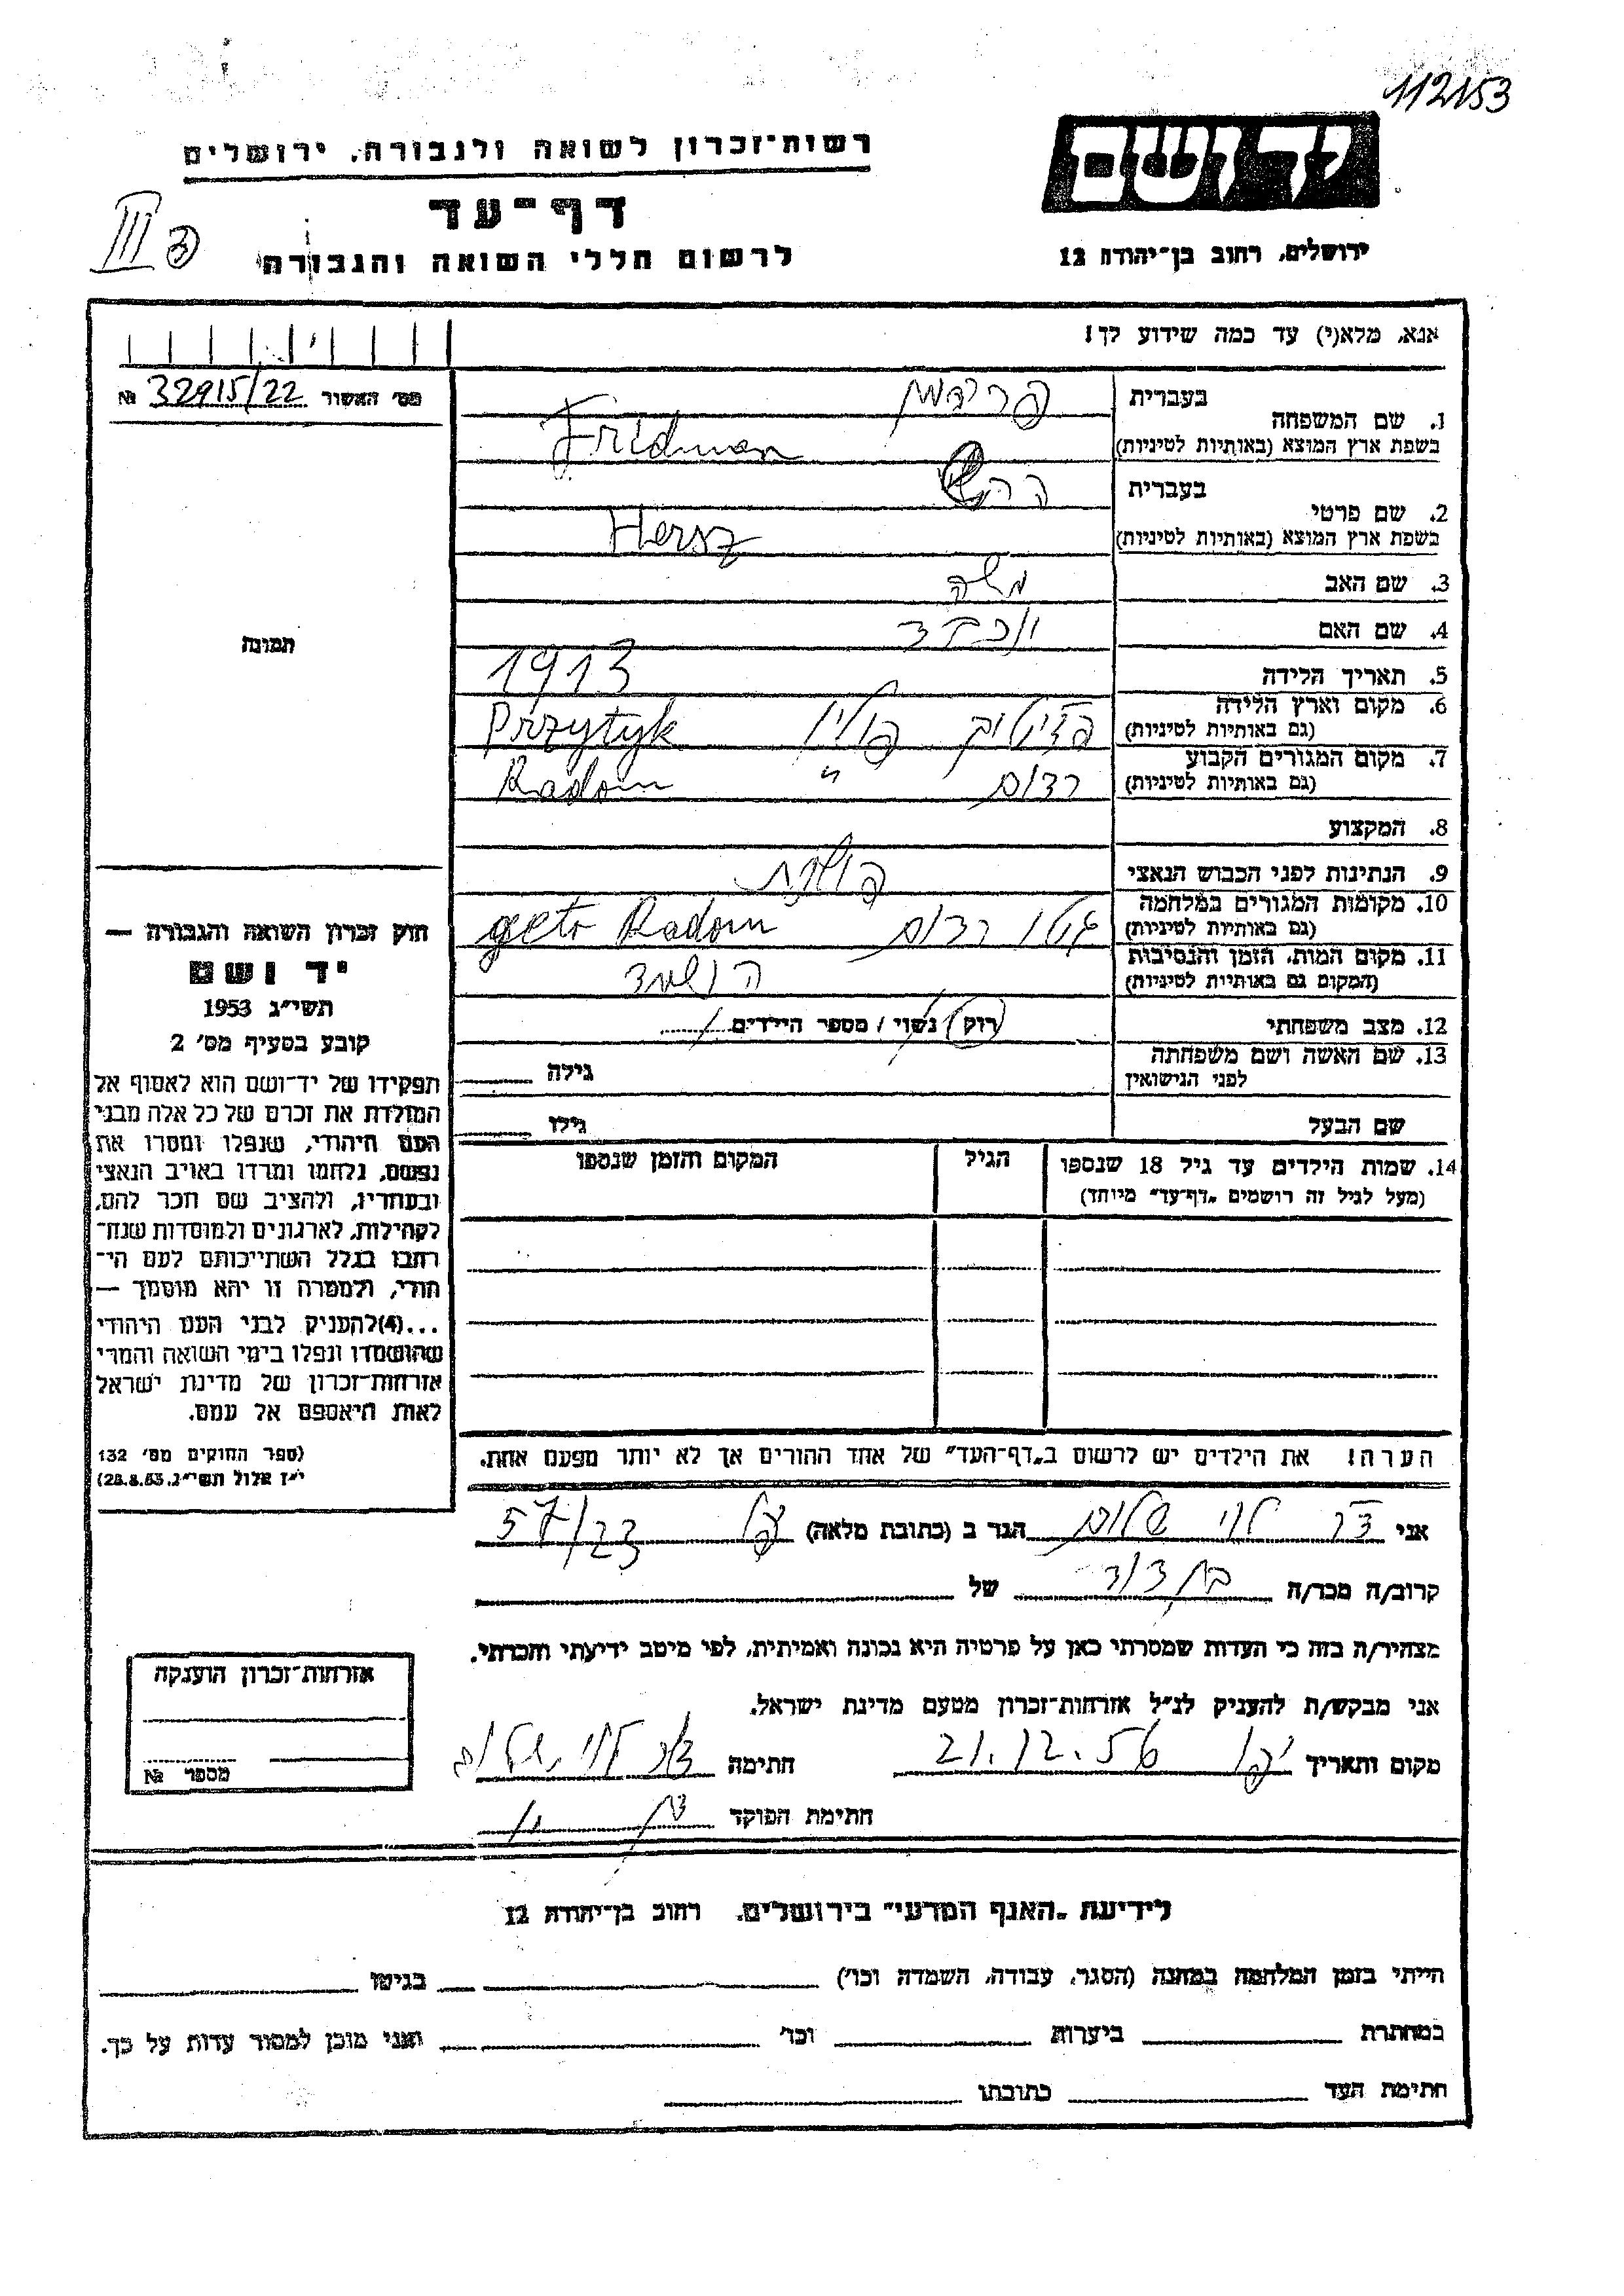 112153
רשות־זכרון לשואה ולגבורה, ירושלים
יד ושם
דף־עד
III
לרשום חללי השואה והגבורה
ירושלים, רחוב בן־יהודה 12
אנא, מלא(י) עד כמה שידוע לך!
מס' האשור 32915/22 №
1. שם המשפחה
בעברית פרידמן
בשפת ארץ המוצא (באותיות לטיניות) Fridman
2. שם פרטי
בעברית הרש
בשפת ארץ המוצא (באותיות לטיניות) Hersz
3. שם האב משה
4. שם האם יוכבד
תמונה
5. תאריך הלידה 1913
6. מקום וארץ הלידה
(גם באותיות לטיניות) פשיטיק פולין Przytyk
7. מקום המגורים הקבוע
(גם באותיות לטיניות) רדום " Radom
8. המקצוע
9. הנתינות לפני הכבוש הנאצי פולנית
10. מקומות המגורים במלחמה
(גם באותיות לטיניות) גטו רדום geto Radom
11. מקום המות, הזמן והנסיבות
(המקום גם באותיות לטיניות) הושמד
12. מצב משפחתי רוק / נשוי / מספר הילדים
13. שם האשה ושם משפחתה
לפני הנישואין גילה
שם הבעל גילו
14. שמות הילדים עד גיל 18 שנספו
(מעל לגיל זה רושמים „דף־עד" מיוחד)
הגיל
המקום והזמן שנספו
חוק זכרון השואה והגבורה —
יד ושם
תשי"ג 1953
קובע בסעיף מס' 2
תפקידו של יד־ושם הוא לאסוף אל
המולדת את זכרם של כל אלה מבני
העם היהודי, שנפלו ומסרו את
נפשם, נלחמו ומרדו באויב הנאצי
ובעוזריו, ולהציב שם וזכר להם,
לקהילות, לארגונים ולמוסדות שנח־
רחבו בגלל השתייכותם לעם הי־
הודי, ולמטרה זו יהא מוסמך —
...(4)להעניק לבני העם היהודי
שהושמדו ונפלו בימי השואה והמרי
אזרחות־זכרון של מדינת ישראל
לאות היאספם אל עמם.
(ספר החוקים מס' 132
י"ז אלול תשי"ג, 28.8.53)
הערה! את הילדים יש לרשום ב„דף־העד" של אחד ההורים אך לא יותר מפעם אחת.
אני לוי שלום הגר ב (כתובת מלאה) 57/23
קרוב/ה מכר/ה בן דוד של
מצהיר/ה בזה כי העדות שמסרתי כאן על פרטיה היא נכונה ואמיתית, לפי מיטב ידיעתי והכרתי.
אני מבקש/ת להעניק לנ"ל אזרחות־זכרון מטעם מדינת ישראל.
מקום ותאריך יפו 21.12.56 חתימה לוי שלום
חתימת הפוקד
אזרחות־זכרון הוענקה
מספר №
לידיעת „האגף המדעי" בירושלים, רחוב בן־יהודה 12
הייתי בזמן המלחמה במחנה (הסגר, עבודה, השמדה וכו') בגיטו
במחתרת ביערות וכו' ואני מוכן למסור עדות על כך.
חתימת העד כתובתו